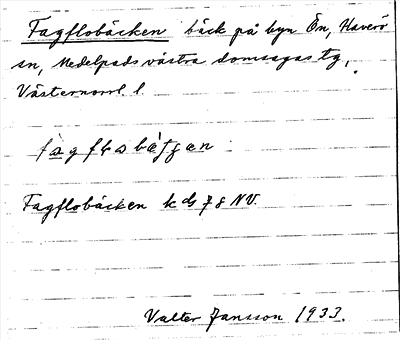 Fagflobäcken bäck på byn Ön, Haverö
sn, Medelpads västra domsagas tg,
Västernorrl. l.
Fagflobäcken k dg 7 8 NV.
Valter Jansson 1933.